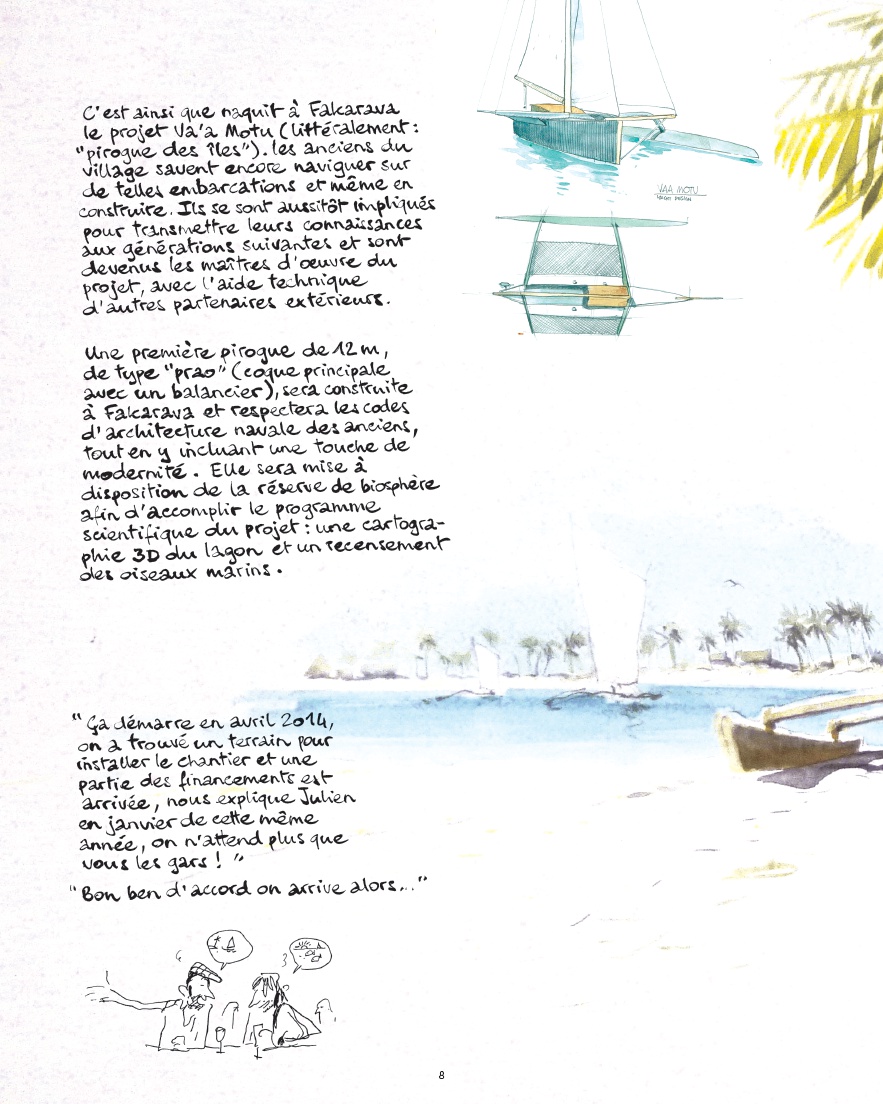 C'est ainsi que naquit à Fakarava
le projet Va'a Motu (littéralement :
"pirogue des îles"). Les anciens du
village savent encore naviguer sur
de telles embarcations et même en
construire. Ils se sont aussitôt impliqués
pour transmettre leurs connaissances
aux générations suivantes et sont
devenus les maîtres d'œuvre du
projet, avec l'aide technique
d'autres partenaires extérieurs.
VAA MOTU
DESIGN
Une première pirogue de 12 m,
de type "prao" (coque principale
avec un balancier), sera construite
à Fakarava et respectera les codes
d'architecture navale des anciens,
tout en y incluant une touche de
modernité. Elle sera mise à
disposition de la réserve de biosphère
afin d'accomplir le programme
scientifique du projet : une cartogra-
phie 3D du lagon et un recensement
des oiseaux marins.
"Ça démarre en avril 2014,
on a trouvé un terrain pour
installer le chantier et une
partie des financements est
arrivée, nous explique Julien
en janvier de cette même
année, on n'attend plus que
vous les gars ! "
"Bon ben d'accord on arrive alors..."
8